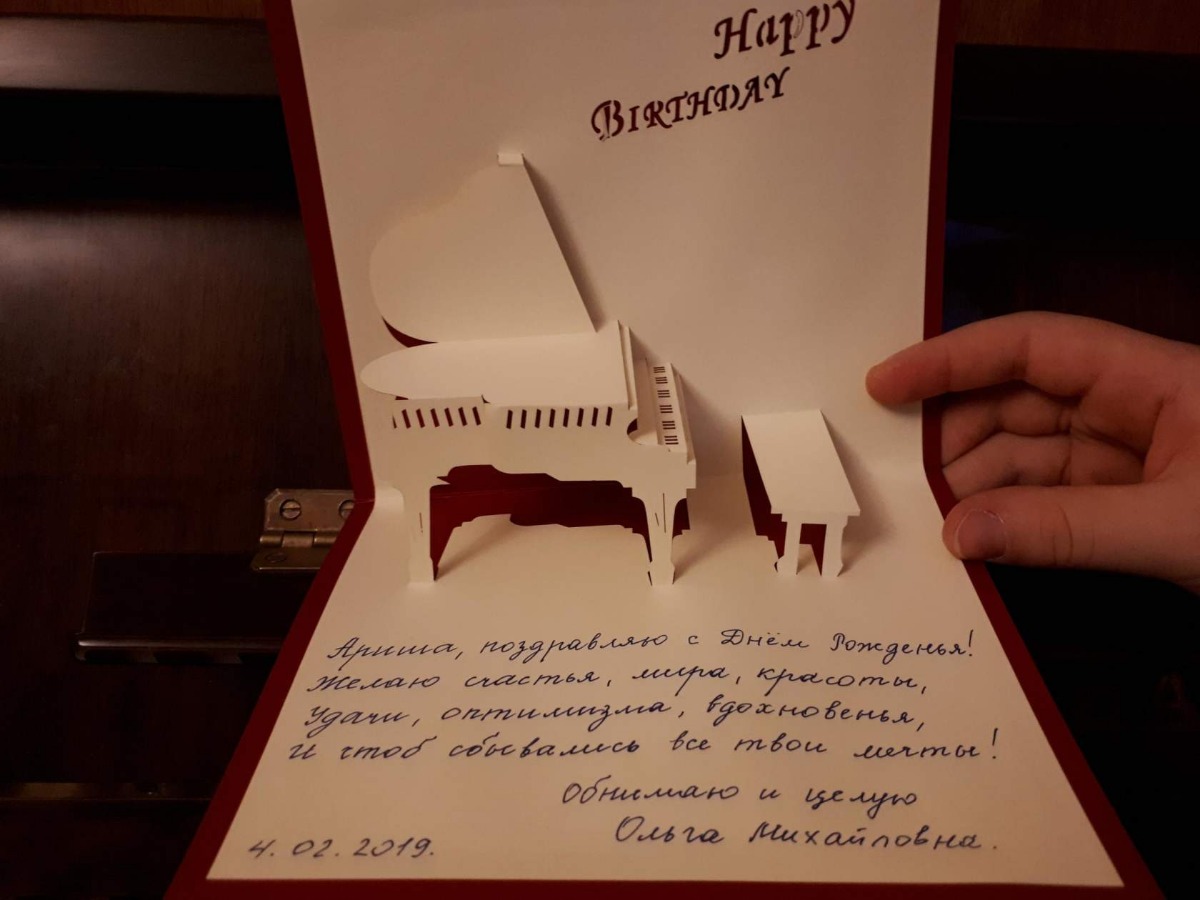 Happy
BIRTHDAY
Ариша, поздравляю с Днём Рожденья!
Желаю счастья, мира, красоты,
Удачи, оптимизма, вдохновенья,
И чтоб сбывались все твои мечты!
Обнимаю и целую
Ольга Михайловна.
4. 02. 2019.